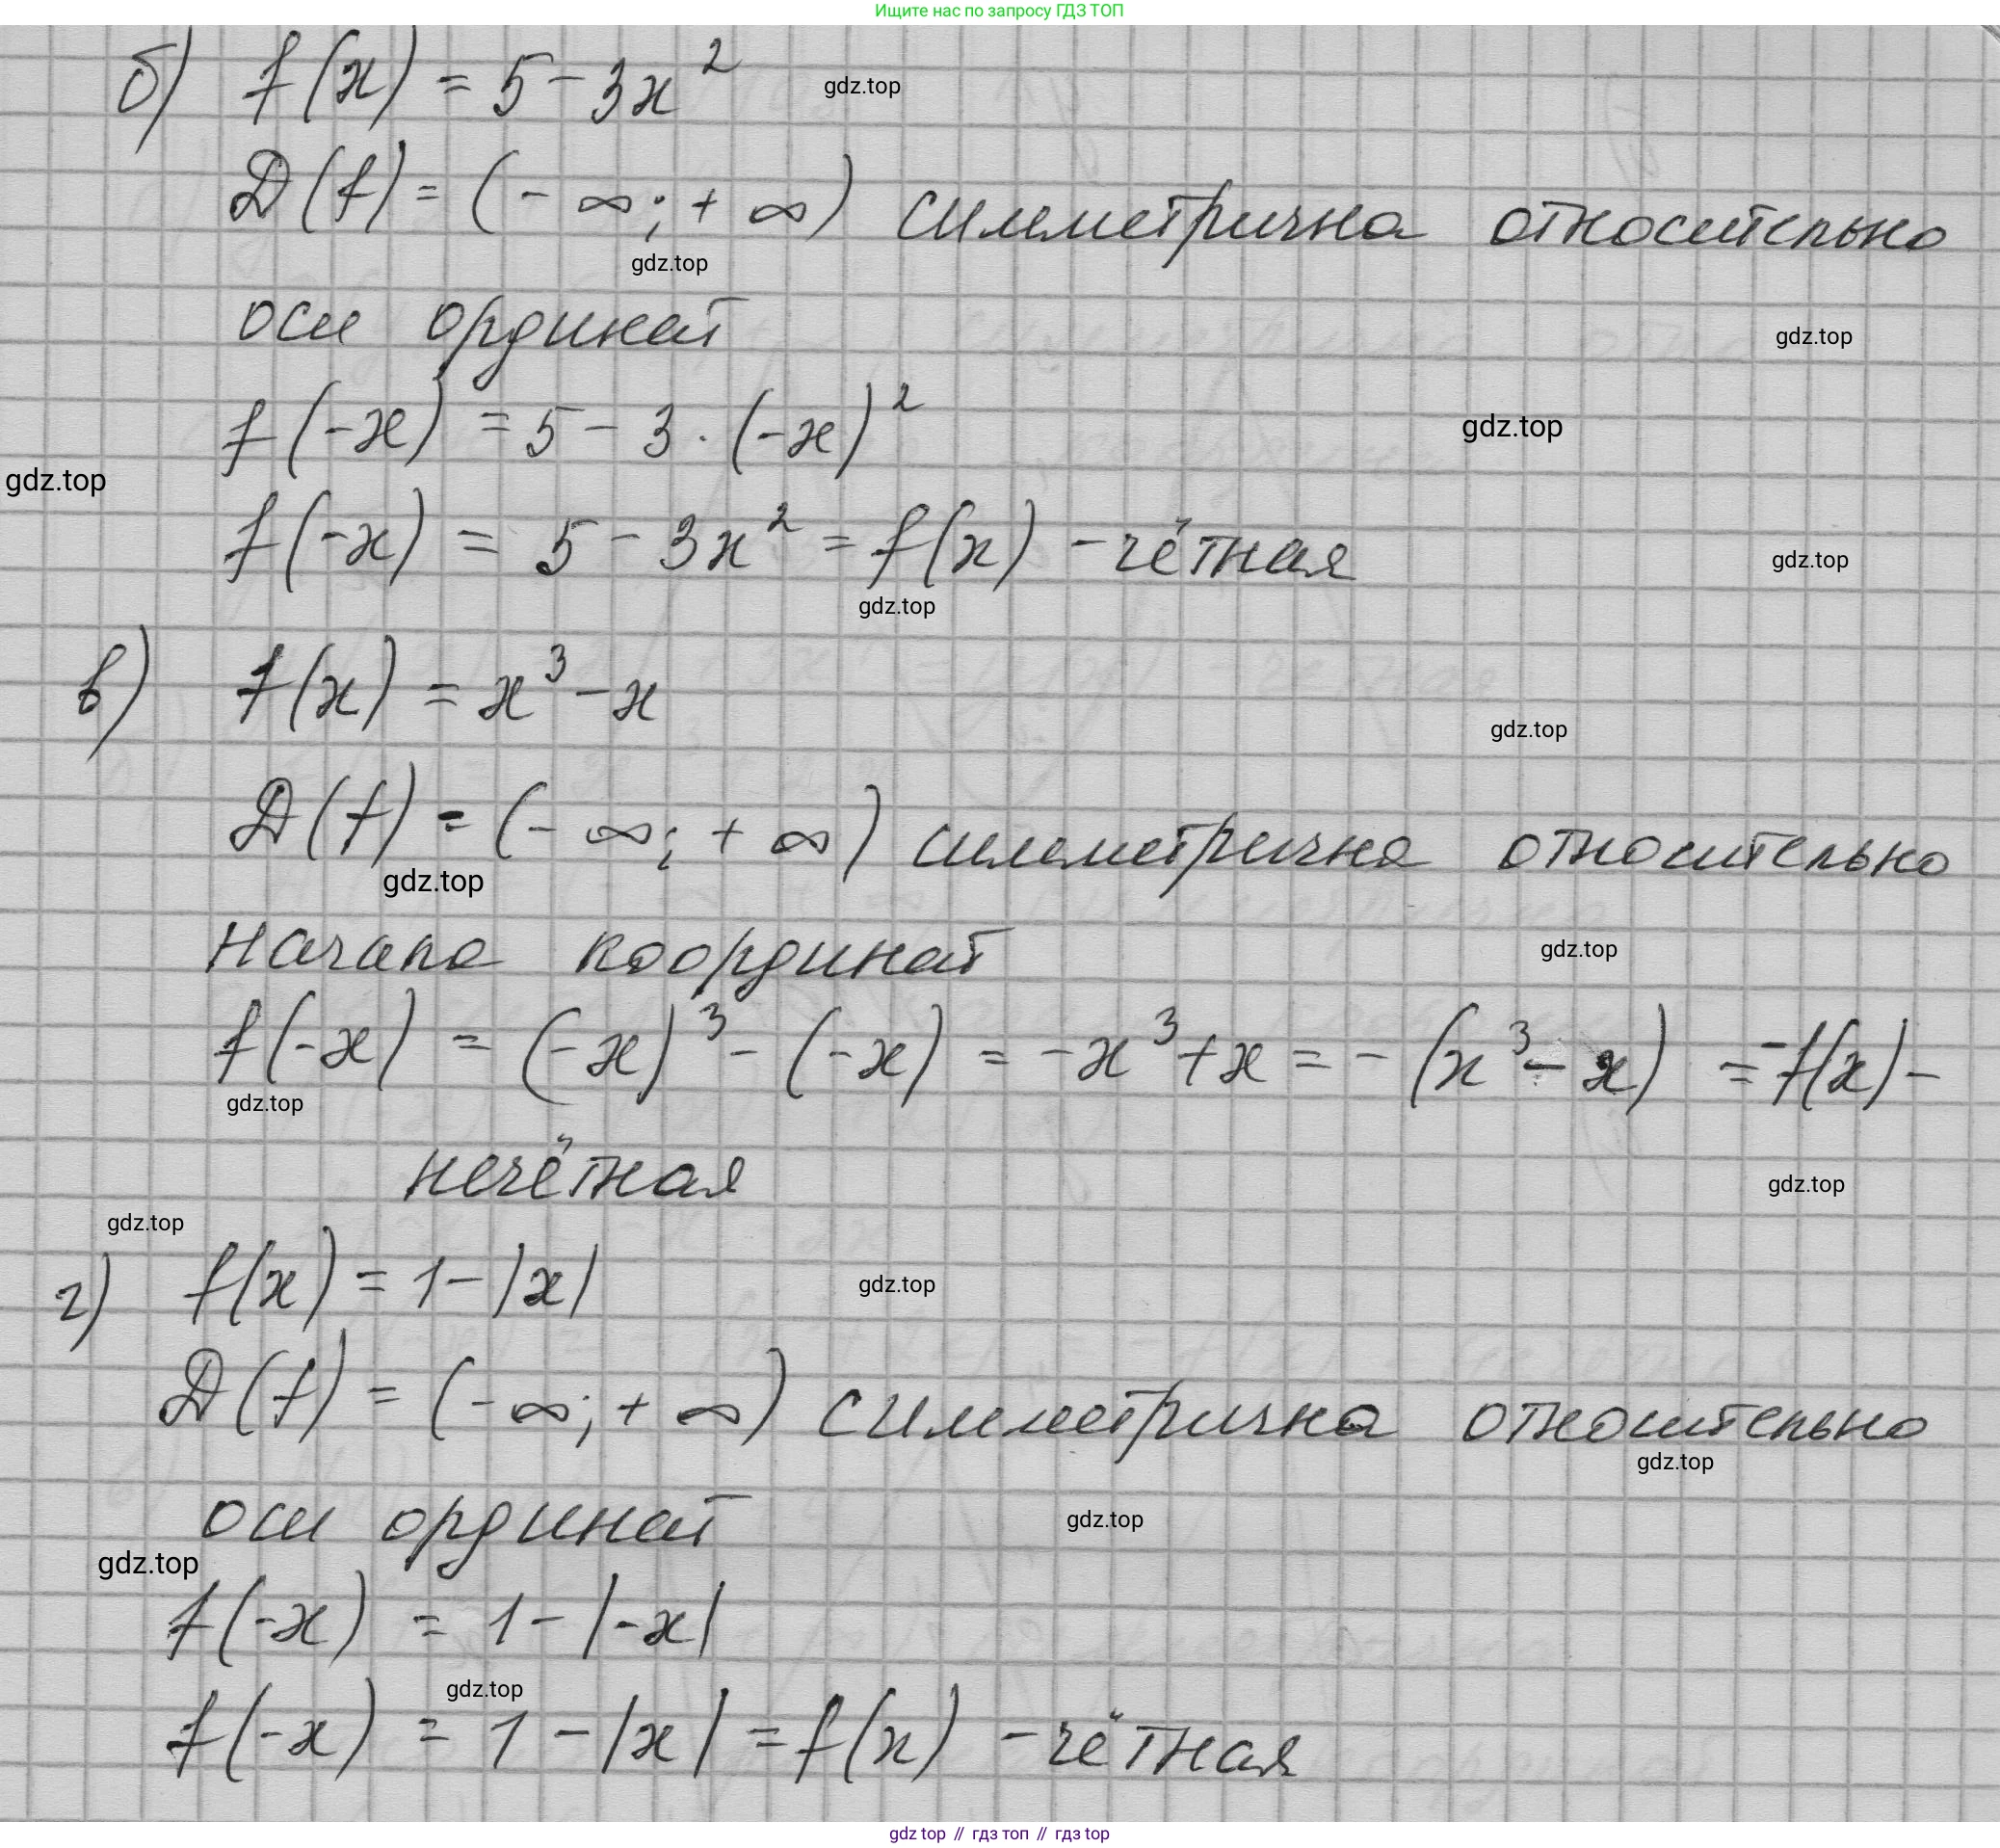 Ищите нас по запросу ГДЗ ТОП
б) f(x) = 5 - 3x²
gdz.top
D(f) = (-∞; +∞) симметрична относительно
gdz.top
оси ординат
gdz.top
f(-x) = 5 - 3·(-x)²
gdz.top
gdz.top
f(-x) = 5 - 3x² = f(x) - чётная
gdz.top
gdz.top
в) f(x) = x³ - x
gdz.top
D(f) = (-∞; +∞) симметрична относительно
gdz.top
начала координат
gdz.top
f(-x) = (-x)³ - (-x) = -x³ + x = -(x³ - x) = -f(x) -
gdz.top
нечётная
gdz.top
gdz.top
г) f(x) = 1 - |x|
gdz.top
D(f) = (-∞; +∞) симметрична относительно
gdz.top
оси ординат
gdz.top
gdz.top
f(-x) = 1 - |-x|
gdz.top
f(-x) = 1 - |x| = f(x) - чётная
gdz top // гдз топ // gdz top